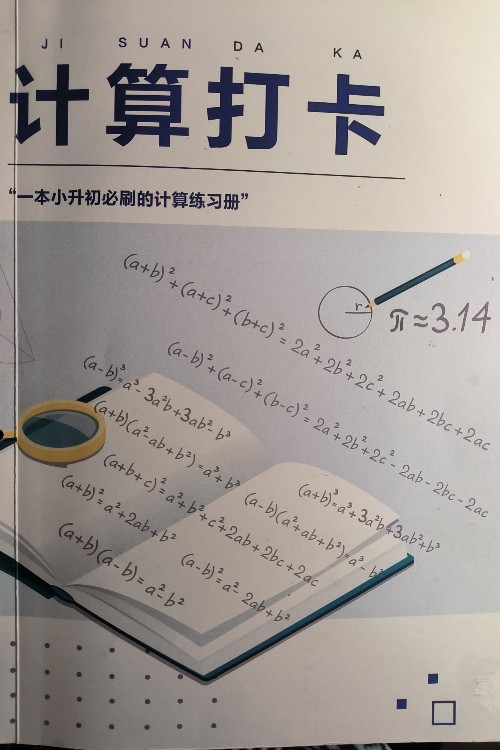 JI SUAN DA KA
计算打卡
“一本小升初必刷的计算练习册”
(a+b)²+(a+c)²+(b+c)²=2a²+2b²+2c²+2ab+2bc+2ac
r
π≈3.14
(a-b)²+(a-c)²+(b-c)²=2a²+2b²+2c²-2ab-2bc-2ac
(a-b)³=a³-3a²b+3ab²-b³
(a+b)(a²-ab+b²)=a³+b³
(a+b+c)²=a²+b²+c²+2ab+2bc+2ac
(a+b)³=a³+3a²b+3ab²+b³
(a+b)²=a²+2ab+b²
(a-b)(a²+ab+b²)=a³-b³
(a+b)(a-b)=a²-b²
(a-b)²=a²-2ab+b²